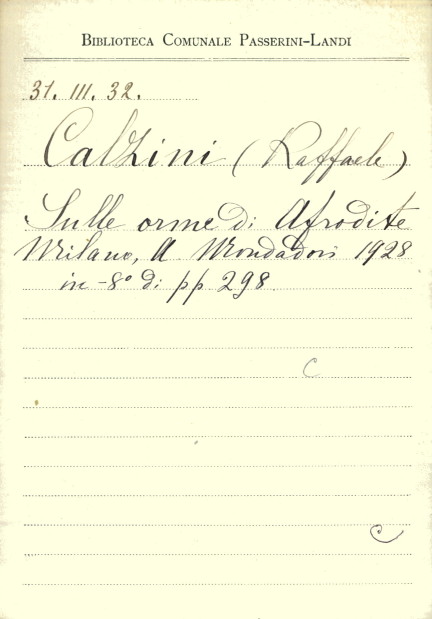 BIBLIOTECA COMUNALE PASSERINI-LANDI
31. III. 32.
Calzini (Raffaele)
Sulle orme di Afrodite
Milano, A Mondadori 1928
in-8° di pp 298
C
C